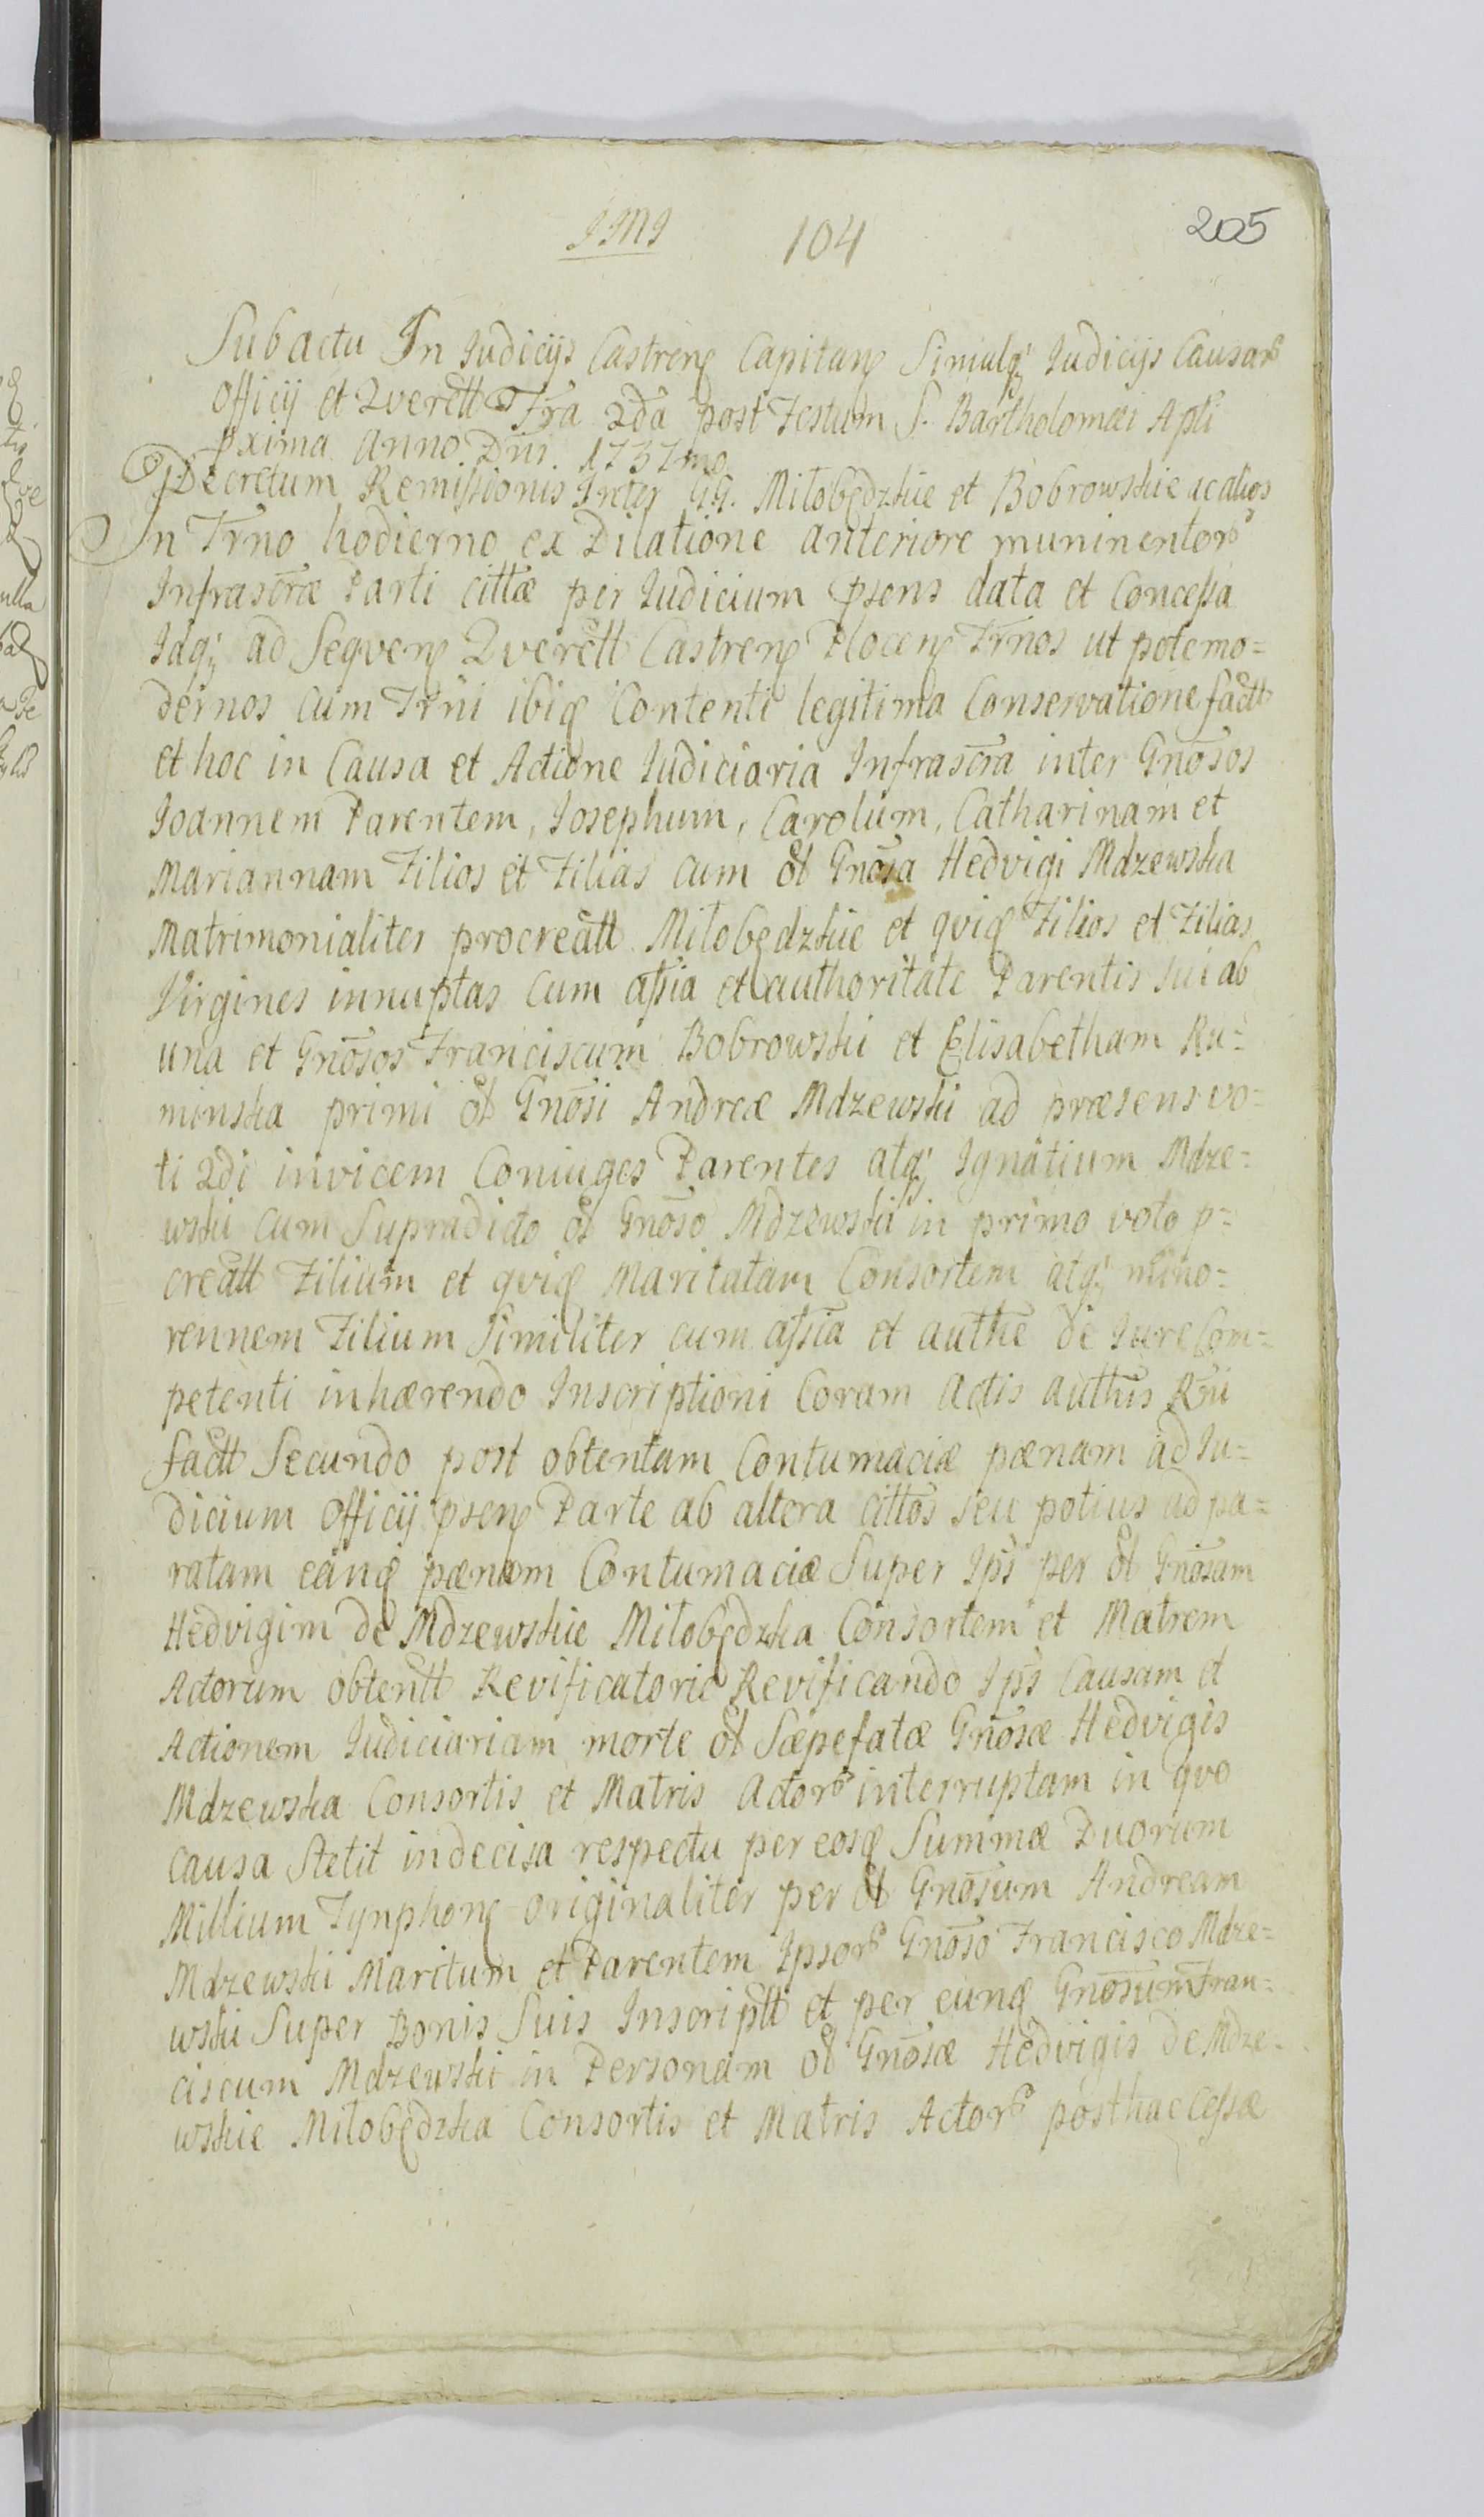 JMJ 104 205
Sub actu In Iudicijs Castren Capitan Simulq Iudicijs Causar
Officij et Querell Fra 2da post Festum S. Bartholomæi Apli
pxima Anno Dni 1737mo
Decretum Remissionis Inter GG. Miłobędzkie et Bobrowskie ac alios
In Trno hodierno ex Dilatione anteriore munimentor
Infrascræ Parti cittæ per Iudicium psens data et Concessa
Idq ad Sequen Querell Castren Plocen Trnos ut pote mo=
dernos cum Trni ibiq Contenti legitima Conservatione factt
et hoc in Causa et Actione Iudiciaria Infrascra inter Gnosos
Ioannem Parentem, Iosephum, Carolum, Catharinam et
Mariannam Filios et Filias cum ol Gnosa Hedvigi Mdzewska
Matrimonialiter procreatt Miłobędzkie et quiq Filios et Filias
Virgines innuptas cum assia et authoritate Parentis sui ab
una et Gnosos Franciscum Bobrowski et Elisabetham Ru=
minska primi ol Gnosi Andreæ Mdzewski ad præsens vo=
ti 2di invicem Coniuges Parentes atq Ignatium Mdze=
wski cum Supradicto ol Gnoso Mdzewski in primo voto p=
creatt Filium et quiq Maritatam Consortem atq mino=
rennem Filium Similiter cum assia et authe de Iure Com=
petenti inhærendo Inscriptioni Coram Actis authis Rni
factt Secundo post obtentam Contumaciæ pænam ad Iu=
dicium Officij psen Parte ab altera cittos seu potius ad pa=
ratam eanq pænam Contumaciæ Super Ips per ol Gnosam
Hedvigim de Mdzewskie Miłobędzka Consortem et Matrem
Actorum obtentt Revificatorie Revificando Ips Causam et
Actionem Iudiciariam morte ol Sæpefatæ Gnosæ Hedvigis
Mdzewska Consortis et Matris Actor interruptam in quo
causa stetit indecisa respectu per eosq Summæ Duorum
Millium Tynphon originaliter per ol Gnosum Andream
Mdzewski Maritum et Parentem Ipsor Gnoso Francisco Mdze=
wski Super Bonis Suis Inscriptt et per eunq Gnosum Fran=
ciscum Mdzewski in Personam ol Gnosæ Hedvigis de Mdze=
wskie Miłobędzka Consortis et Matris Actor posthac Cessæ